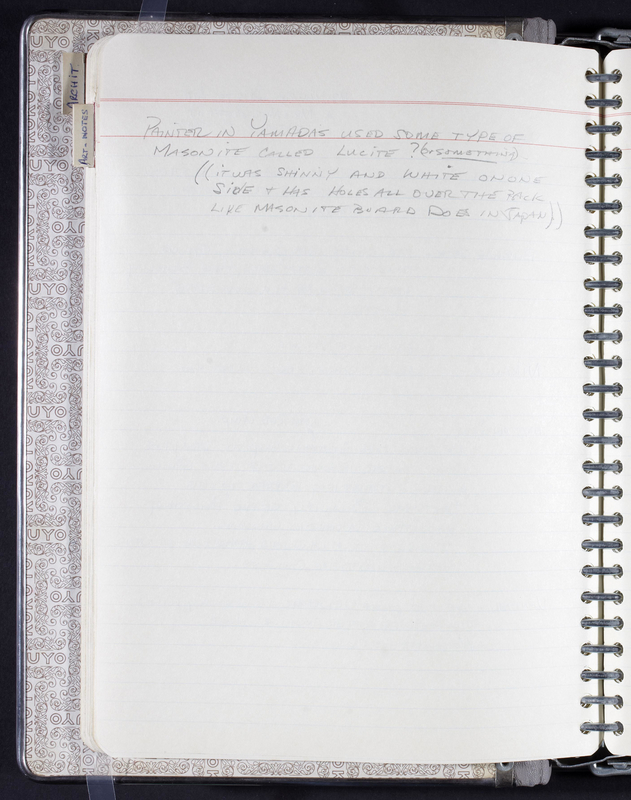 ARCHIT
ART-NOTES
PAINTER IN YAMADAS USED SOME TYPE OF
MASONITE CALLED LUCITE ? (OR SOMETHING).
((IT WAS SHINNY AND WHITE ON ONE
SIDE & HAS HOLES ALL OVER THE BACK
LIKE MASONITE BOARD DOES IN JAPAN))
KOKUYO